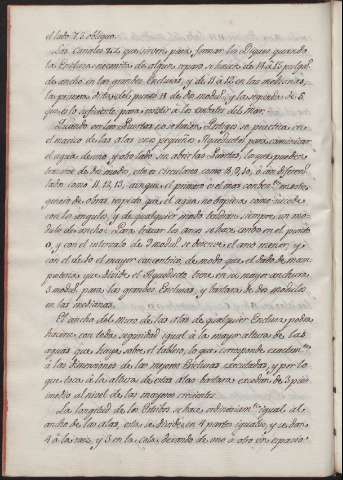 el lado 7. 6 obliquo.
Los Canales 762 que sirven para formar los Diques quando
la Esclusa necesita de algun reparo se hacen de 14 à 15 pulg.s
de ancho en las grandes Esclusas, y de 11 à 12 en las medianas,
la primera dista del punto 18 de dos modul.s y la segunda de 5.
que es lo suficiente para resistir à los embates del Mar.
Quando en las Puertas no se hacen Postigos se practica en
el macizo de las alas unos pequeños Aqueductos para comunicar
el agua de uno, y otro lado sin abrir las Puertas, lo que puede
trazarse de dos modos, esto es circulares como 8, 9, 10, ò con
lados como 11, 12, 13, aunque el primero es el mas
de obras, respeto que el agua no tropieza como sucede
con los angulos, y de qualquier modo tendran siempre un mo-
dulo de ancho. Para trazar los arcos se hace centro en el punto
o, y con el intervalo de 3 modul.s se describe el arco menor, y
con el de 4 el mayor concentrico, de modo que el
que divide el Aqueducto tiene en su mayor anchura
3 modul.s para las grandes Esclusas, y bastara de dos modulos
en las medianas.
El ancho del Muro de las alas de qualquier Esclusa, podra
hacerse con toda seguridad igual à la mayor altura de las
aguas que haya sobre el tablero, lo que corresponde exactam.te
à las dimensiones de las mejores Esclusas executadas, y por lo
que toca à la altura de estas alas bastara excedan de 3 pies
medio al nivel de las mayores crecientes.
La longitud de los Estribos se hace ordinariam.te igual al
ancho de las alas, esta se divide en 4 partes iguales, y se dan
4 à la raiz, y 3 en la cola, dexando de uno à otro un espacio